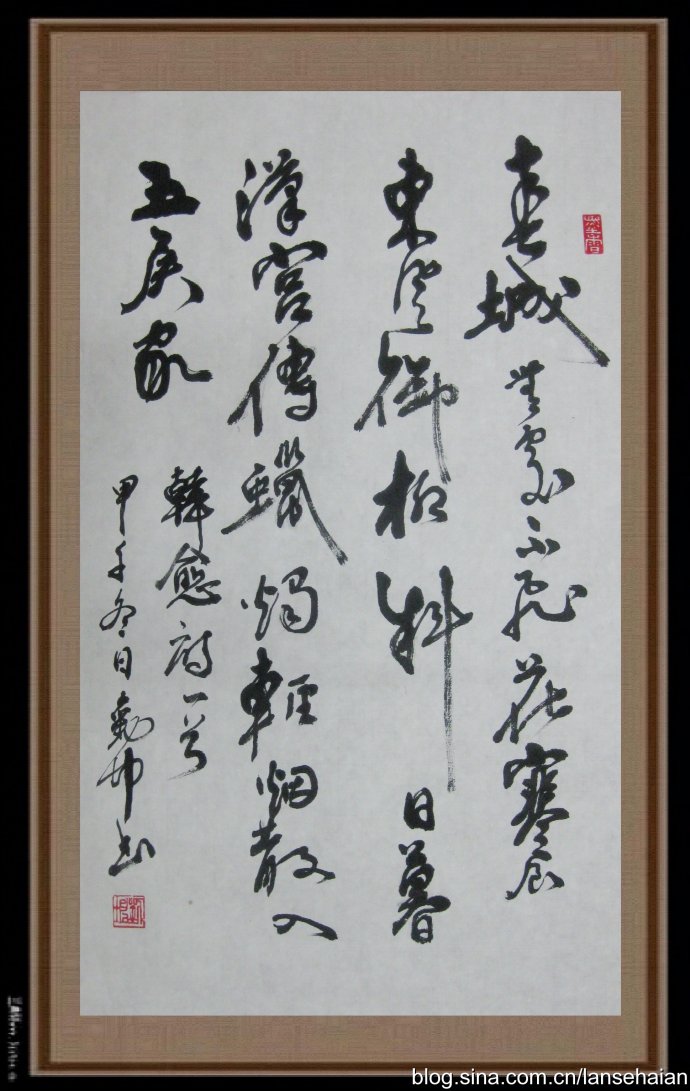 春城無處不飛花寒食
東風御柳斜 日暮
漢宮傳蠟燭輕烟散入
五侯家
韓愈詩一首
甲午冬日勤坤书
blog.sina.com.cn/lansehaian